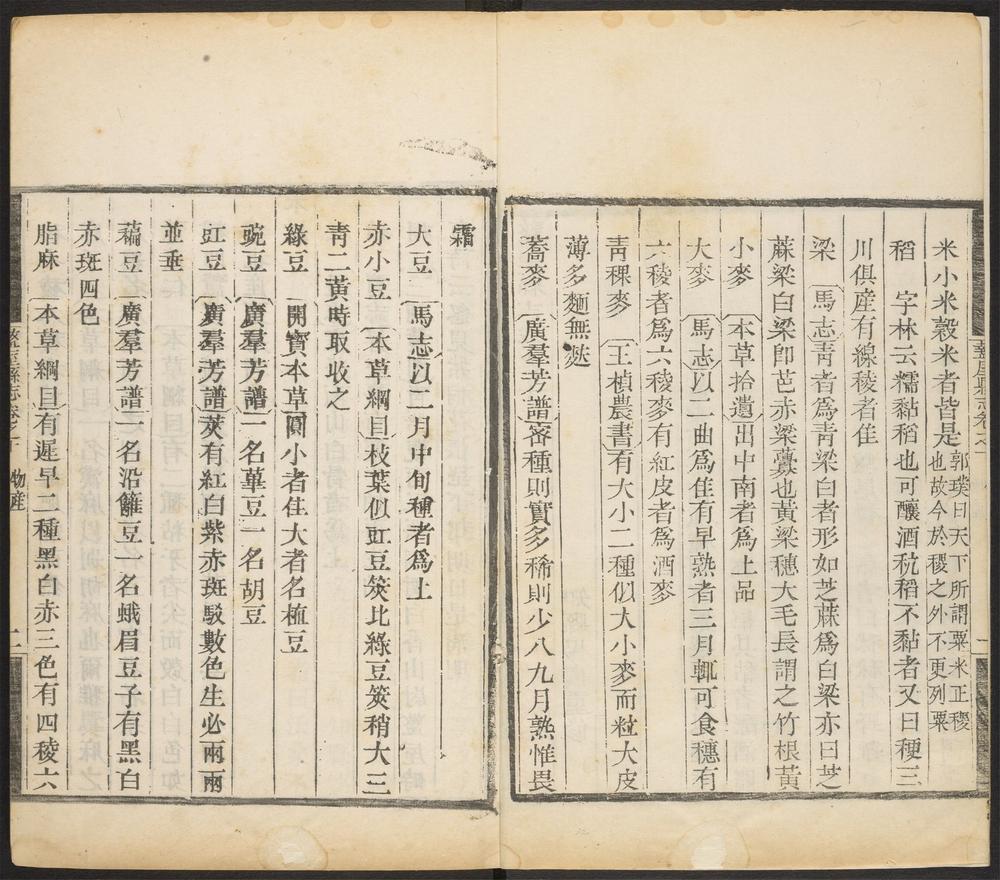 米小米穀米者皆是郭璞曰天下所謂粟米正稷
也故今於稷之外不更列粟
稻 字林云糯黏稻也可釀酒秔稻不黏者又曰稉三
川俱産有線稜者佳
梁 馬志青者爲青梁白者形如芝蔴爲白梁亦曰芝
蔴梁白梁卽芑赤梁虋也黃梁穗大毛長謂之竹根黃
小麥 本草拾遺出中南者爲上品
大麥 馬志以二曲爲隹有早熟者三月輒可食穗有
六稜者爲六稜麥有紅皮者爲酒麥
青稞麥 王楨農書有大小二種似大小麥而粒大皮
薄多麵無麩
蕎麥 廣羣芳譜宻種則實多稀則少八九月熟惟畏
霜
大豆 馬志以二月中旬種者爲上
赤小豆 本草綱目枝葉似豇豆筴比綠豆筴稍大三
青二黃時取收之
綠豆 開寶本草圓小者佳大者名植豆
豌豆 廣羣芳譜一名蓽豆一名胡豆
豇豆 廣羣芳譜莢有紅白紫赤斑駁數色生必兩兩
並垂
藊豆 廣羣芳譜一名沿籬豆一名蛾眉豆子有黑白
赤斑四色
脂麻 本草綱目有遲早二種黑白赤三色有四稜六
物産
二